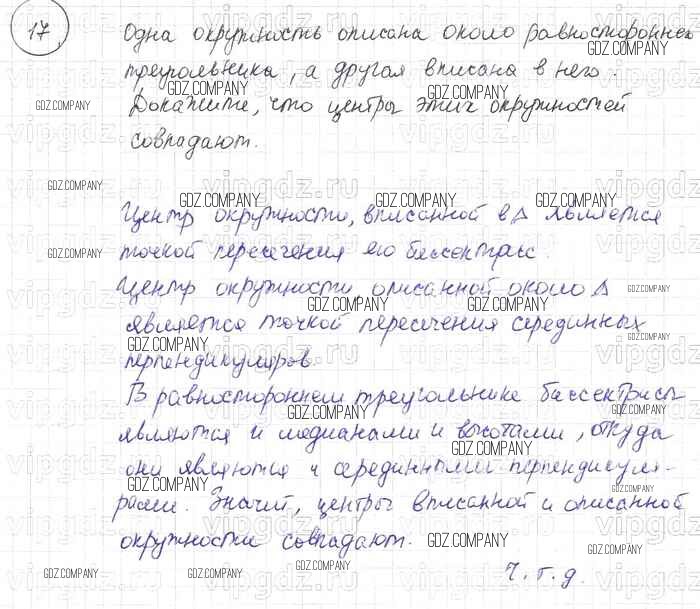 17
Одна окружность описана около равностороннего
треугольника, а другая вписана в него.
Докажите, что центры этих окружностей
совпадают.
Центр окружности, вписанной в Δ является
точкой пересечения его биссектрис.
Центр окружности описанной около Δ
является точкой пересечения серединных
перпендикуляров.
В равностороннем треугольнике биссектрисы
являются и медианами и высотами, откуда
они являются и серединными перпендикуля-
рами. Значит, центры вписанной и описанной
окружности совпадают.
ч.т.д.
GDZ.COMPANY
vipgdz.ru